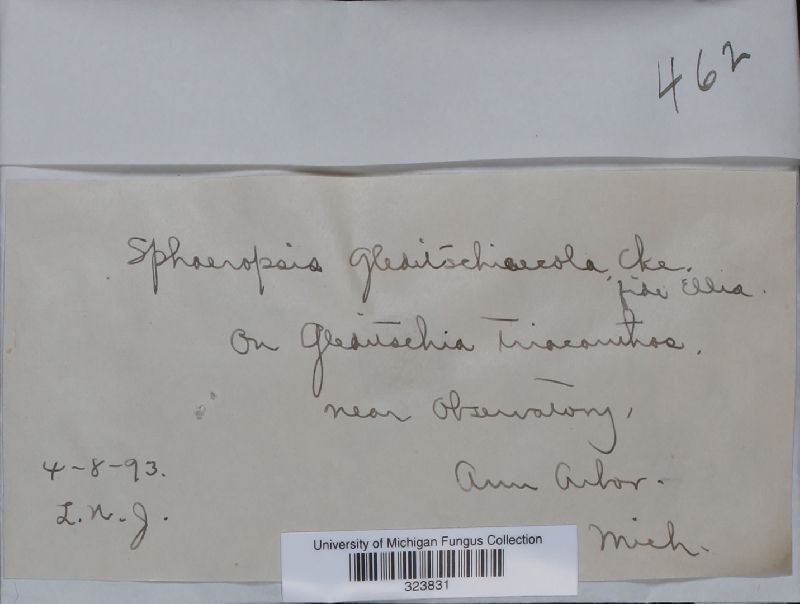 462
Sphaeropsis gleditschiaecola, Cke.
fide Ellis.
On Gleditschia Triacanthos.
near Observatory,
4-8-93.
Ann Arbor.
L.N.J.
Mich.
University of Michigan Fungus Collection
323831